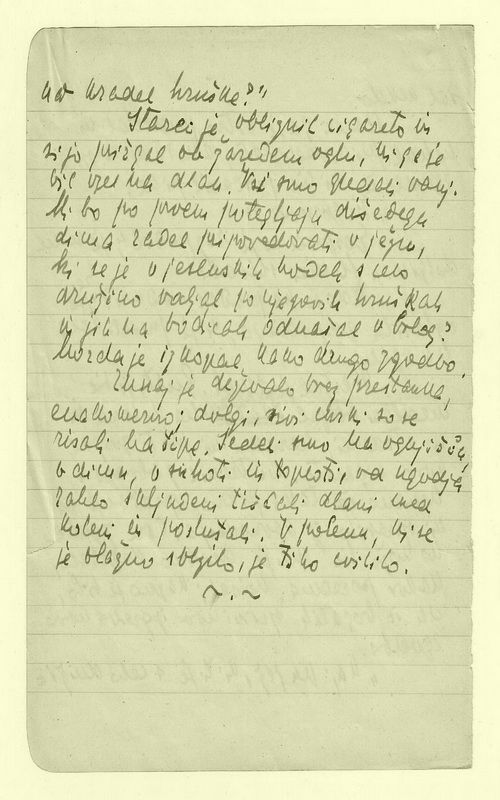 kdo kradel hruške?"
Starec je obliznil cigareto in
si jo prižgal ob žarečem oglu, ki ga je
bil vzel na dlan. Vsi smo gledali vanj.
Ali bo po prvem potegljaju dišečega
dima začel pripovedovati o ježu,
ki se je v jesenskih nočeh s celo
družino valjal po njegovih hruškah
in jih na bodicah odnašal v brlog?
Morda je izkopal kako drugo zgodbo.
Zunaj je deževalo brez prestanka,
enakomerno; dolgi, sivi curki so se
risali na šipe. Sedeli smo na ognjišču,
v dimu, v suhoti in toploti, od ugodja
rahlo sključeni tiščali dlani med
koleni in poslušali. V polenu, ki se
je vlažno solzilo, je tiho cvililo.
~.~